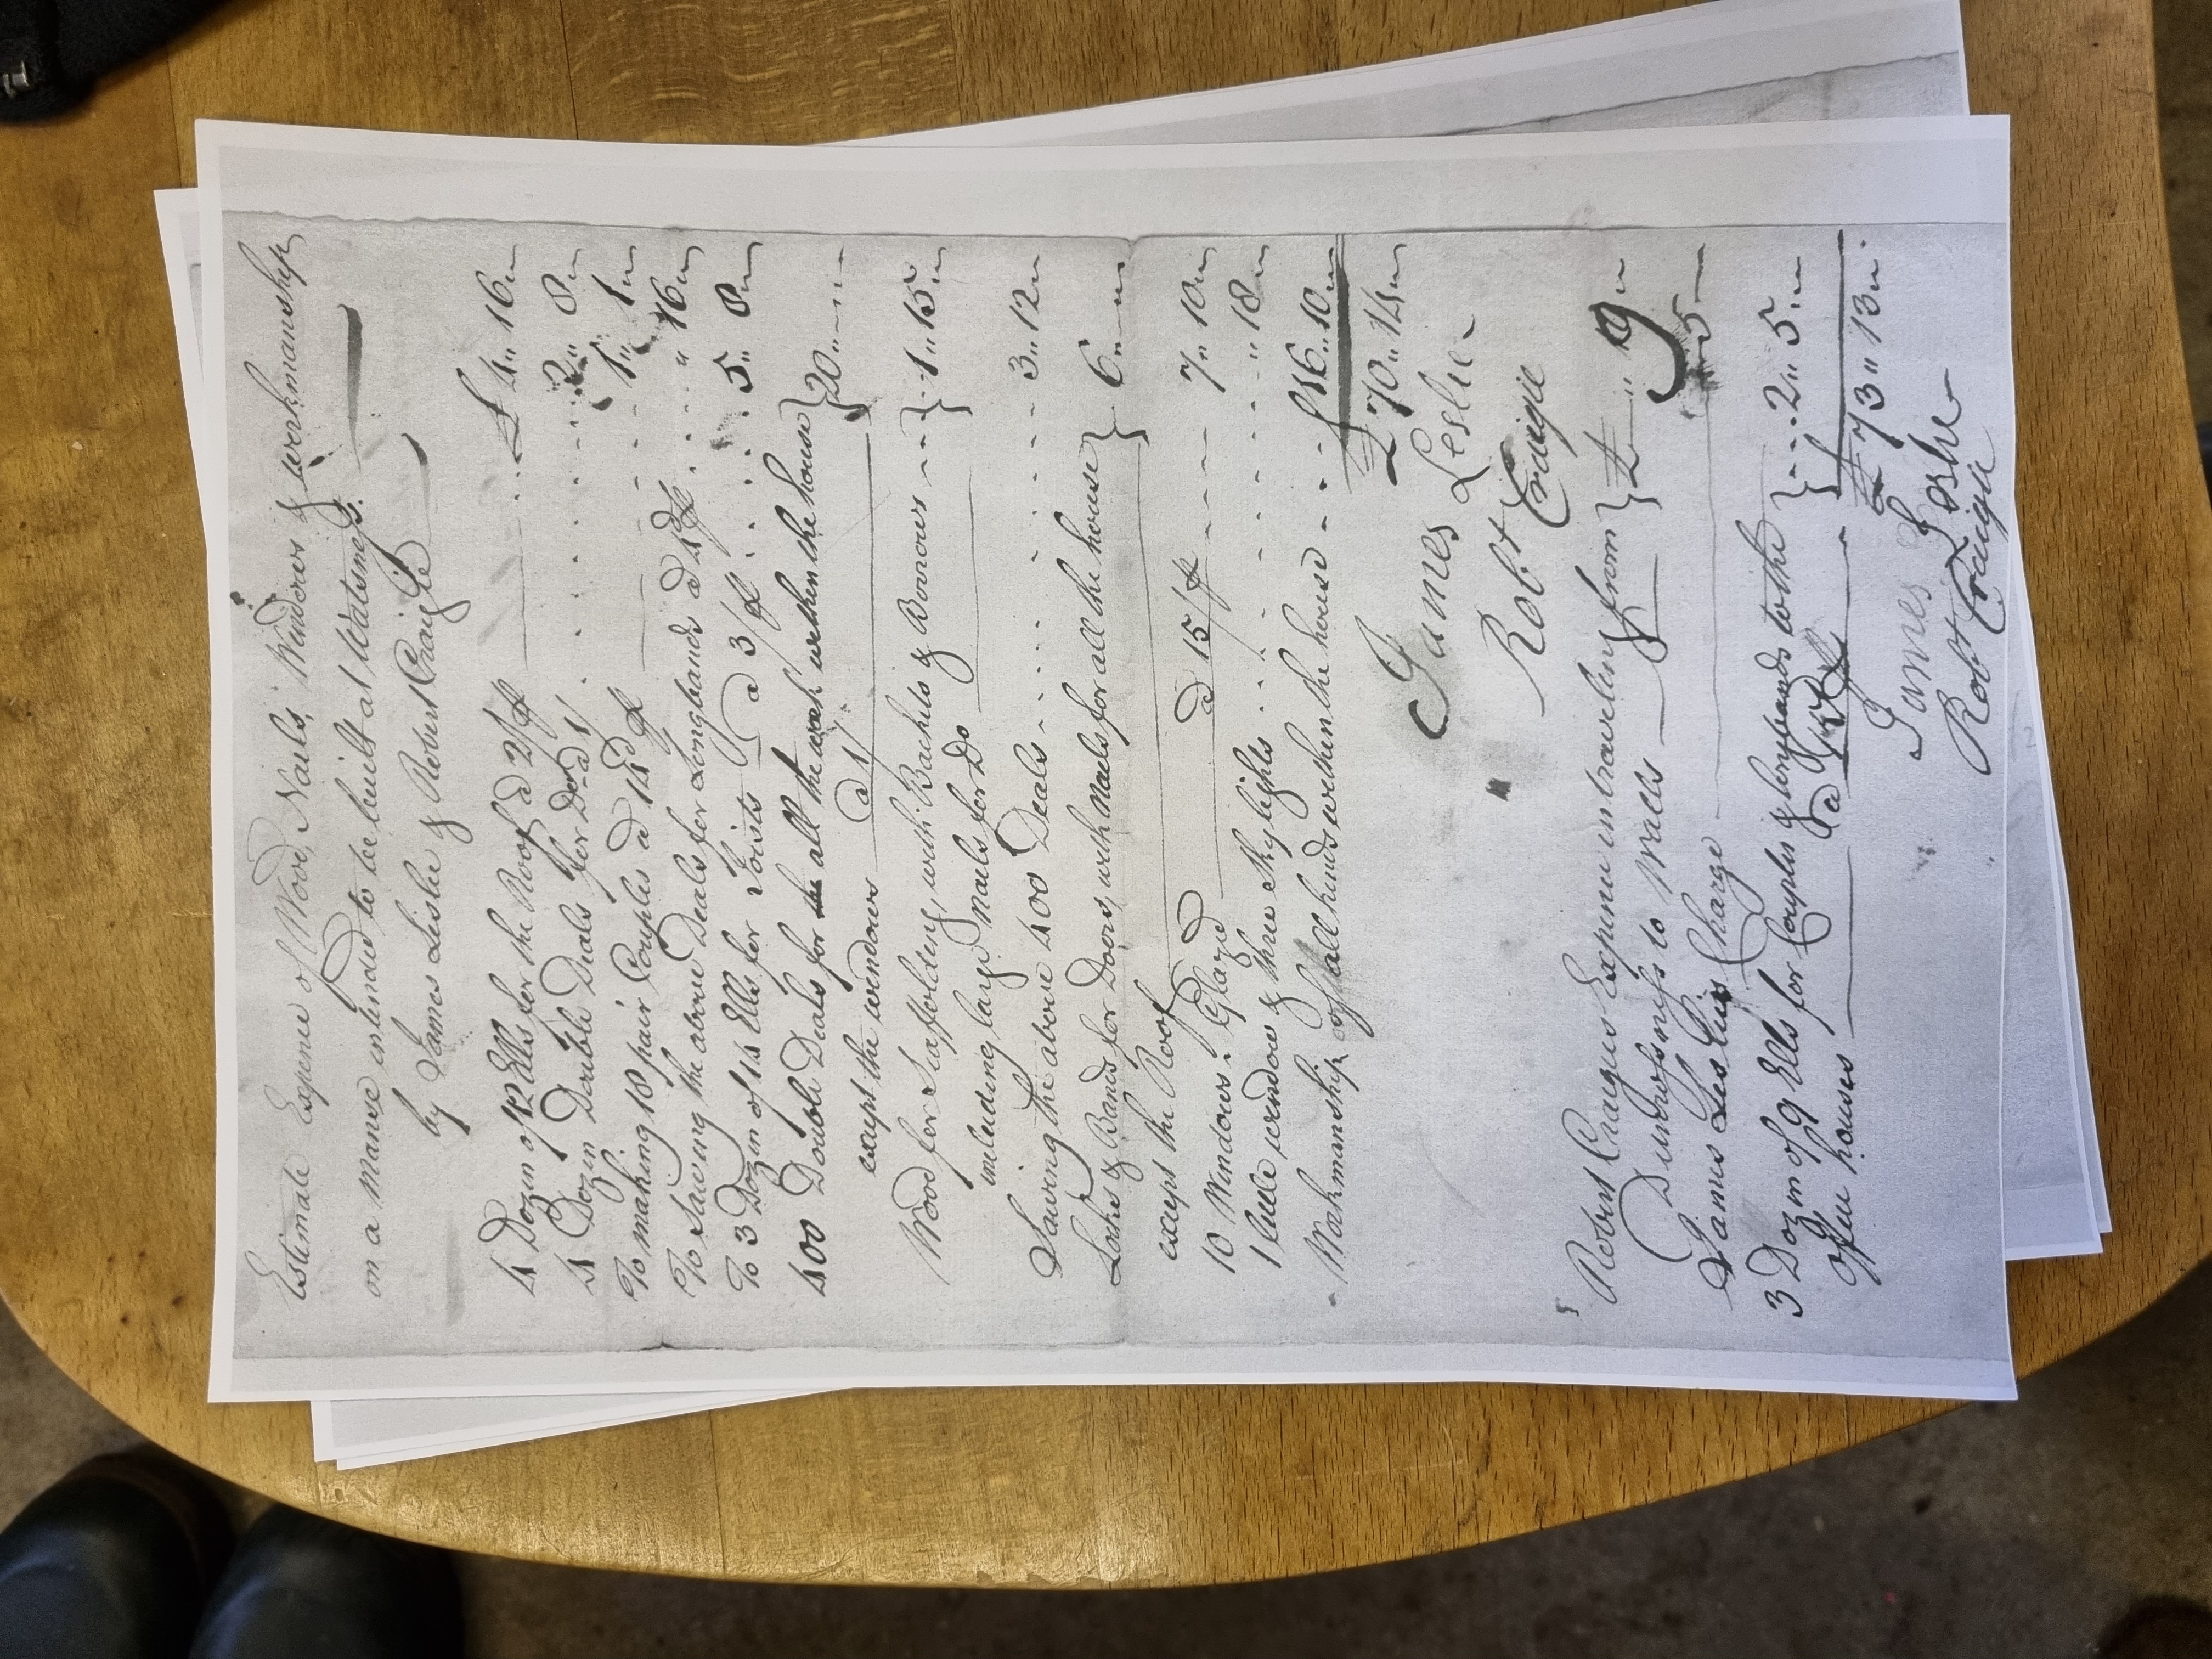 Estimate Expence of Wood, Nails, Windows & workmanship
on a Manse intended to be built at Watsness.
by James Leslie & Robert Craigie
4 Dozen of 12 Ells for the Roof a 2/ ℔ . . £ 4 „ 16 „
4 Dozen Double Deals for Do a 1/ . . . . 2 „ 8 „
To making 18 pair Couples a 14d ℔ . . . 1 „ 1 „
To Sawing the above Deals for Longbands a 4d ℔ . . . „ 16 „
To 3 Dozen of 14 Ells for Joists a 3/ ℔ . . . . 5 „ 8 „
400 Double Deals for all the work within the house }
except the windows a 1/ } 20 „ „
Wood for Scaffolding, with Bachets & Borrows - - }
including large Nails for Do } 1 „ 15 „
Sawing the above 400 Deals - . . . . . 3 „ 12 „
Locks & Bands for Doors, with Nails for all the house }
except the Roof } 6 „ „
10 Windows. Glazed a 15/ ℔ - - - - 7 „ 10 „
1 little window & three Skylights . . . . . „ 18 „
Workmanship of all kinds within the house - - - £16 „ 10 „
£ 70 „ 14 „
James Leslie
Robt Craigie
Robert Craigies Expence in traveling from }
Dunrossness to Walls } £ „ 9 „
James Leslies Charge 5 „
3 Dozen of 9 Ells for Couples & longbands to the }
office houses a } - - 2 „ 5 „
£ 73 „ 13 „
James Leslie
Robt Craigie